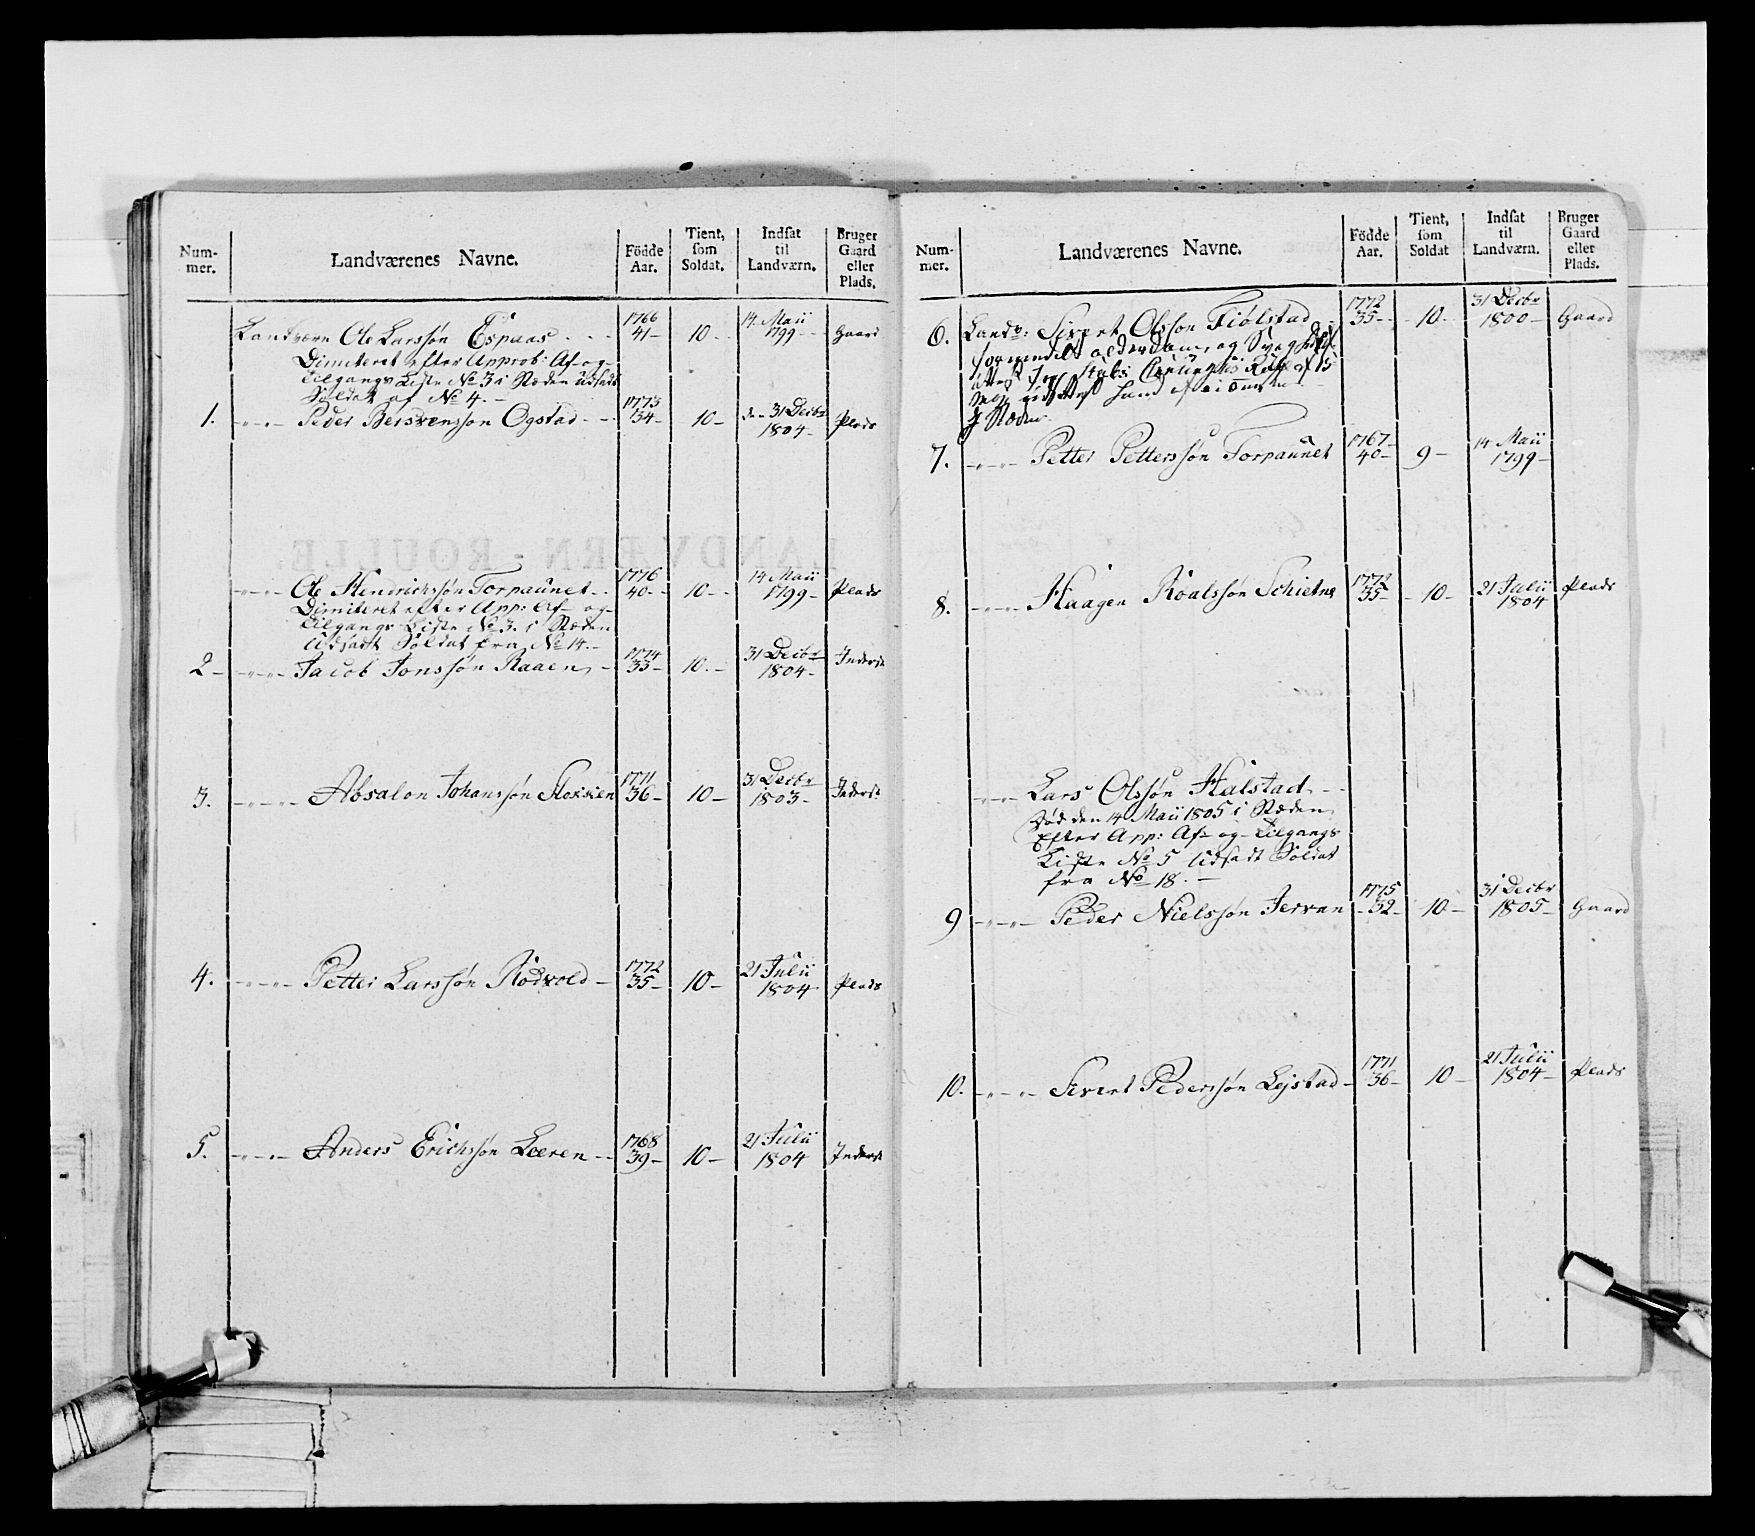 Num-
mer.
Landværenes Navne.
Födde
Aar.
Tient,
som
Soldat.
Indsat
til
Landværn.
Bruger
Gaard
eller
Plads.
Landværn Ole Larssøn Espaas 1766 41 10 14 Maii 1799 Gaard
Dimiteret efter Approb: Af- og
Tilgangs Liste No 3 i Stæden udsadt
Soldat af No 4.
1. Peder Bersvenssøn Ogstad 1773 34 10 den 31 Decbr 1804 Plads
Ole Hendrichssøn Torpaunet 1776 40 10 14 Maii 1799 Plads
Dimiteret efter App: Af- og
Tilgangs Liste No 3. i Stæden
Udsadt Soldat fra No 14.
2 Jacob Jonssøn Raaen 1774 33 10 31 Decbr 1804 Inderst
3. Absalon Johanssøn Stokken 1771 36 10 31 Decbr 1803 Inderst
4. Petter Larssøn Rødvold 1772 35 10 21 Julii 1804 Plads
5. Anders Erichssøn Leeren 1768 39 10 21 Julii 1804 Inderst
Num-
mer.
Landværenes Navne.
Födde
Aar.
Tient,
som
Soldat
Indsat
til
Landværn.
Bruger
Gaard
eller
Plads.
6. Landv: Sivert Olsson Fiølstad 1772 35 10 31 Decbr 1800 Gaard
7. Petter Petterssøn Torpaunet 1767 40 9 14 Maii 1799
8. Haagen Roalssøn Schietne 1772 35 10 21 Julii 1804 Plads
Lars Olssøn Halstad
Død den 14 Maii 1805 i Stæden
Efter App: Af- og Tilgangs
Liste No 5 Udsadt Soldat
fra No 18.
9 Peder Nielssøn Jervan 1775 32 10 31 Decbr 1805 Gaard
10. Sivert Pederssøn Lejstad 1771 36 10 21 Julii 1804 Plads